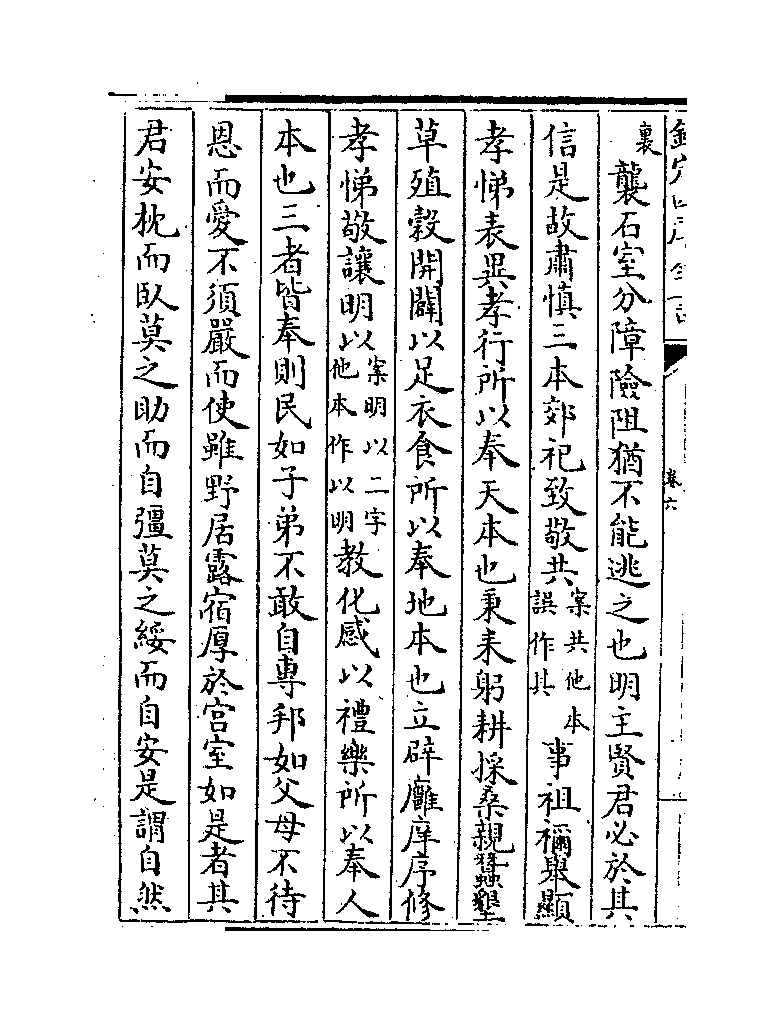 欽定四庫全書
卷六
裏襲石室分障險阻猶不能逃之也明主賢君必於其
信是故肅慎三本郊祀致敬共案共他本誤作其事祖禰舉顯
孝悌表異孝行所以奉天本也秉耒躬耕採桑親蠶墾
草殖穀開闢以足衣食所以奉地本也立辟廱庠序修
孝悌敬讓明以案明以二字他本作以明教化感以禮樂所以奉人
本也三者皆奉則民如子弟不敢自專邦如父母不待
恩而愛不須嚴而使雖野居露宿厚於宫室如是者其
君安枕而臥莫之助而自彊莫之綏而自安是謂自然